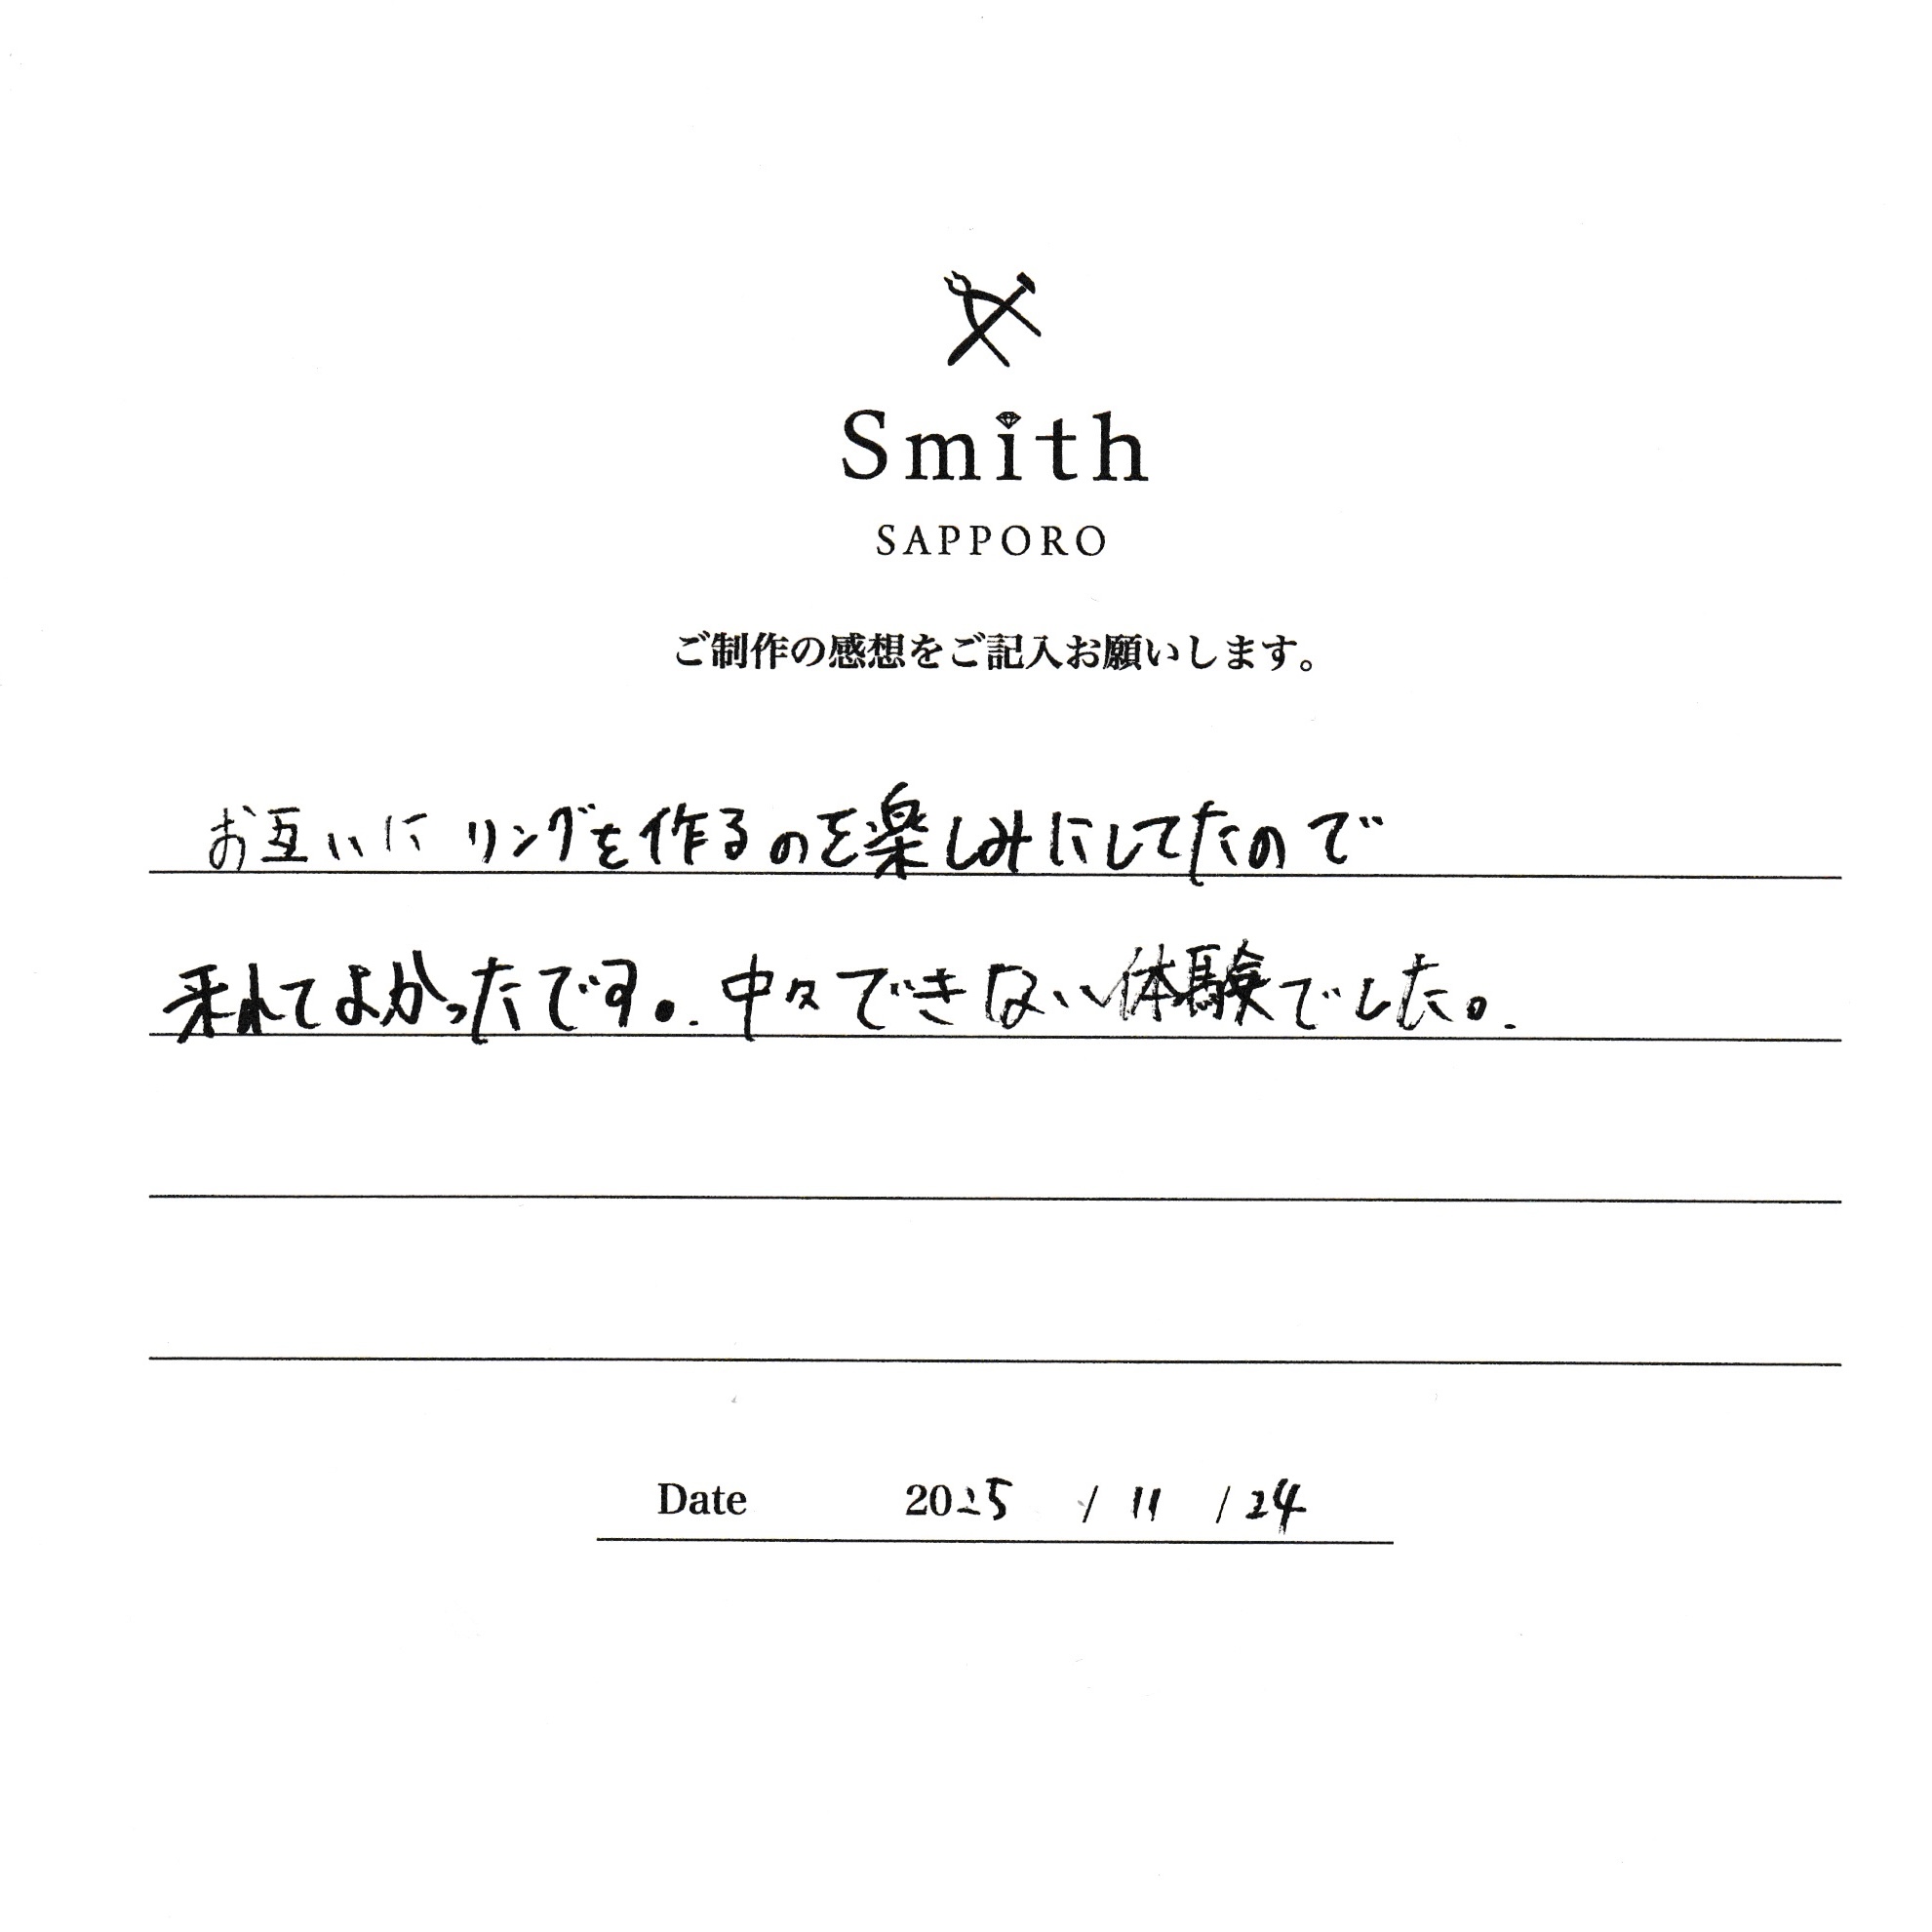 Smith
SAPPORO
ご制作の感想をご記入お願いします。
お互いにリングを作るのを楽しみにしてたので
来れてよかったです。中々できない体験でした。
Date 2025 / 11 / 24